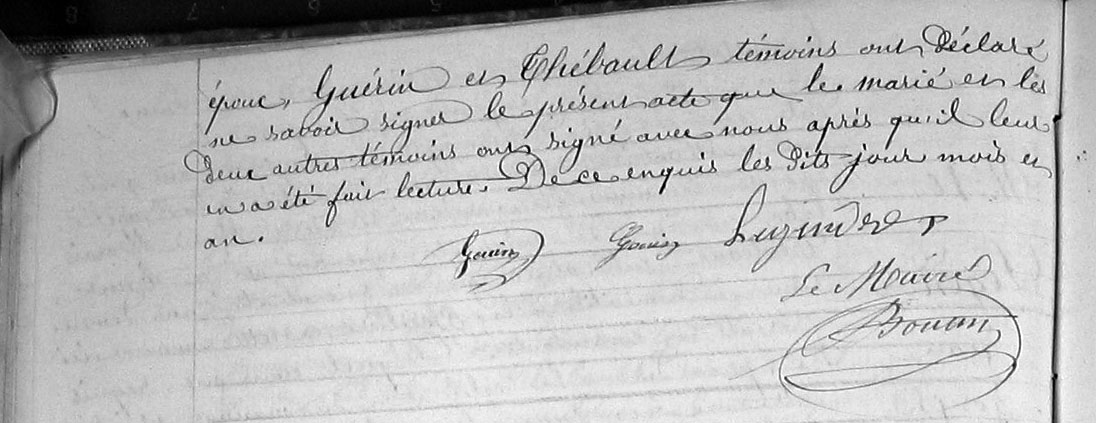 époux, Guérin et Thébault témoins ont déclaré
ne savoir signer le présent acte que le marié et les
deux autres témoins ont signé avec nous après qu'il leur
en a été fait lecture. De ce enquis les dits jour mois et
an.
Gouin Gouin
Le Maire